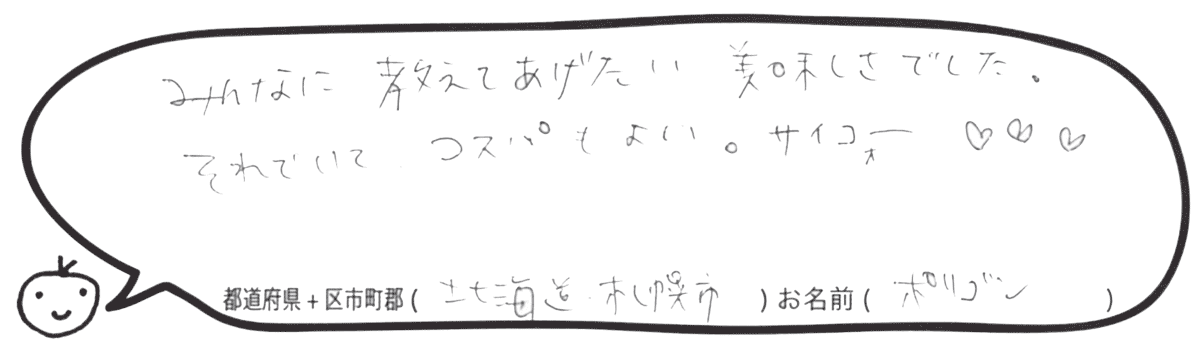 みんなに 教えてあげたい 美味しさでした。
それでいて、コスパもよい。サイコォー ♡♡♡
都道府県+区市町郡( 北海道 札幌市 )お名前( ポリゴン )